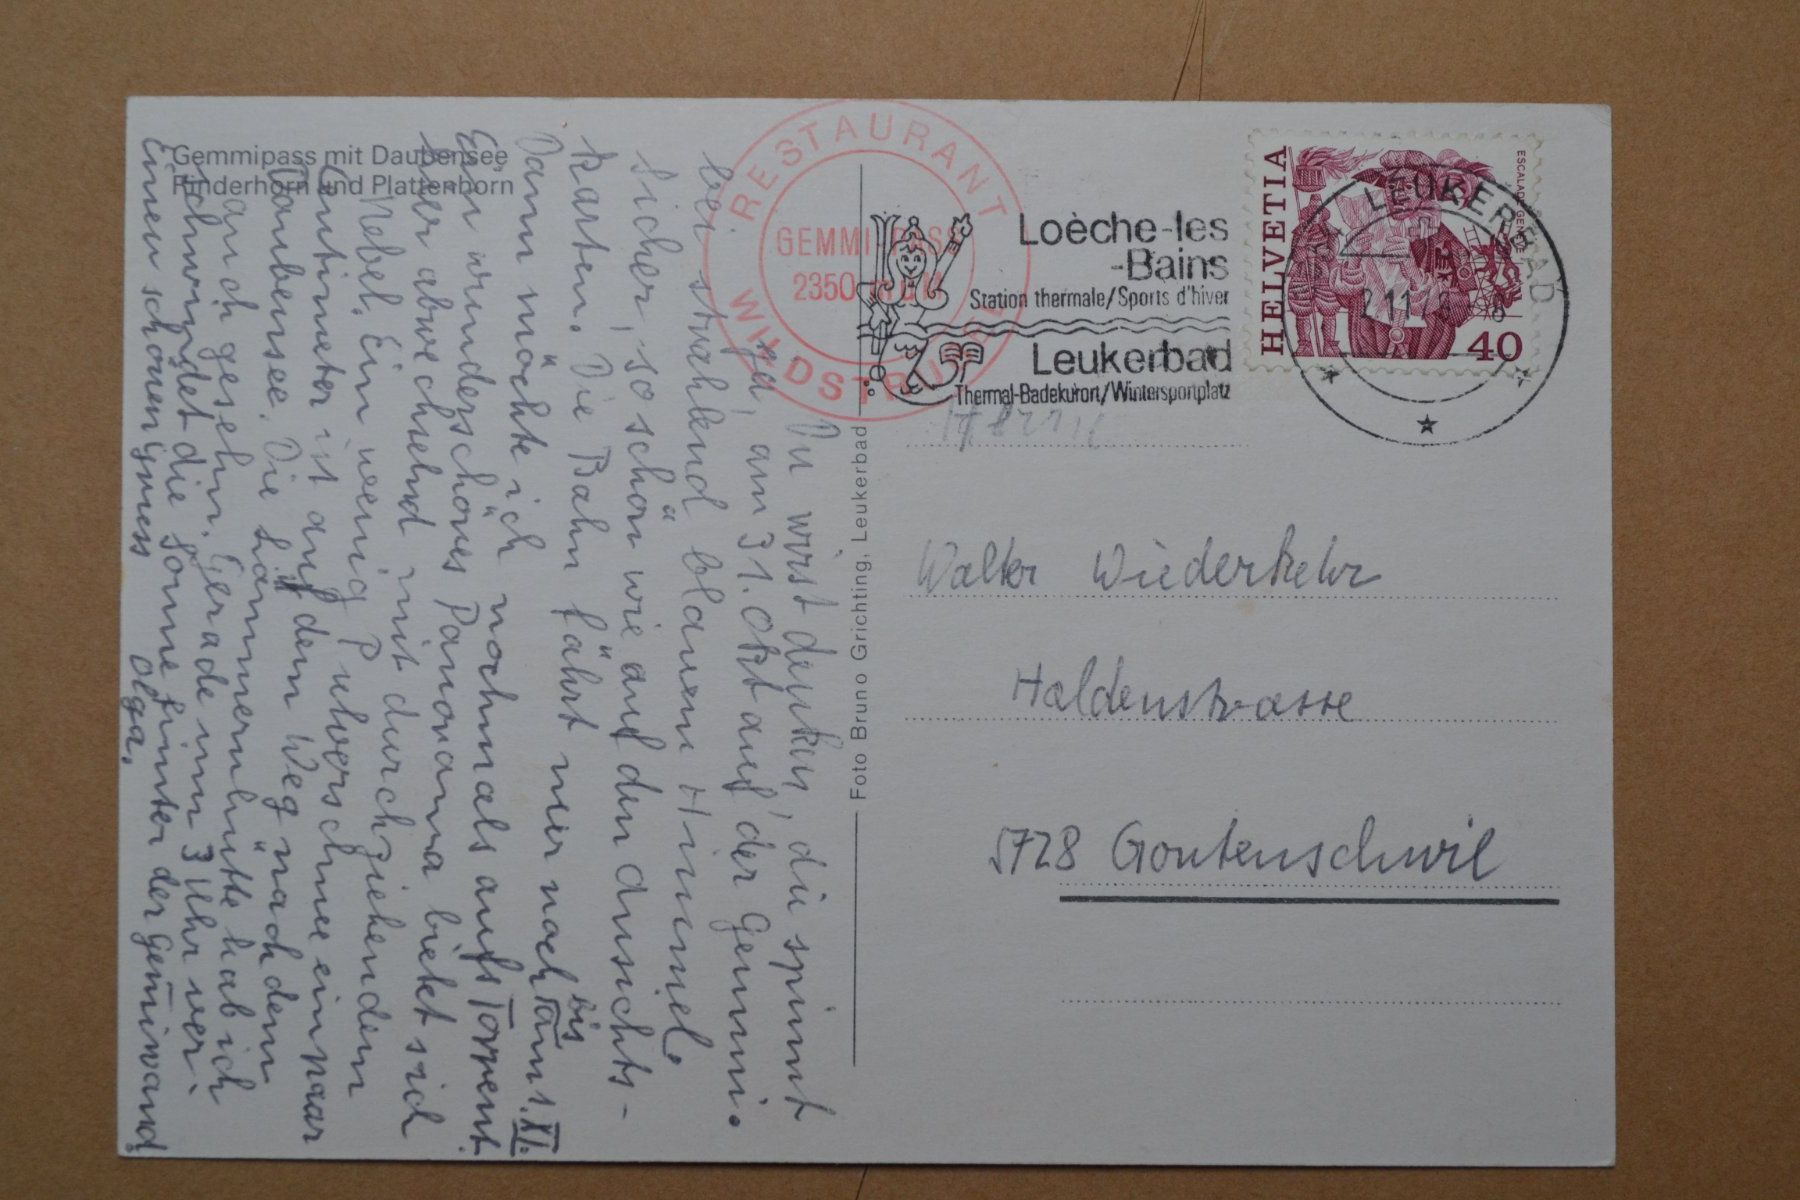 Gemmipass mit Daubensee
Rinderhorn und Plattenhorn
Du wirst denken, die spinnt
ja, am 31. Okt auf der Gemmi.
bei strahlend blauem Himmel.
Sicher, so schön wie auf den Aussichts-
karten. Die Bahn fährt nur noch bis am 1. XI.
Dann möchte ich nochmals aufs Torrent.
Ein wunderschönes Panorama bietet sich
hier abwechselnd mit durchziehendem
Nebel. Ein wenig Pulverschnee ein paar
Centimeter ist auf dem Weg nach dem
Daubensee. Die Lämmernhütte hab ich
auch gesehn. Gerade um 3 Uhr ver-
schwindet die Sonne hinter der Gemmiwand.
Einen schönen Gruess Olga.
Foto Bruno Grichting, Leukerbad
RESTAURANT
GEMMIPASS
2350
WILDSTRUBEL
Loèche-les
-Bains
Station thermale/Sports d'hiver
Leukerbad
Thermal-Badekurort/Wintersportplatz
HELVETIA
40
LEUKERBAD
Walter Wiederkehr
Haldenstrasse
5728 Gontenschwil